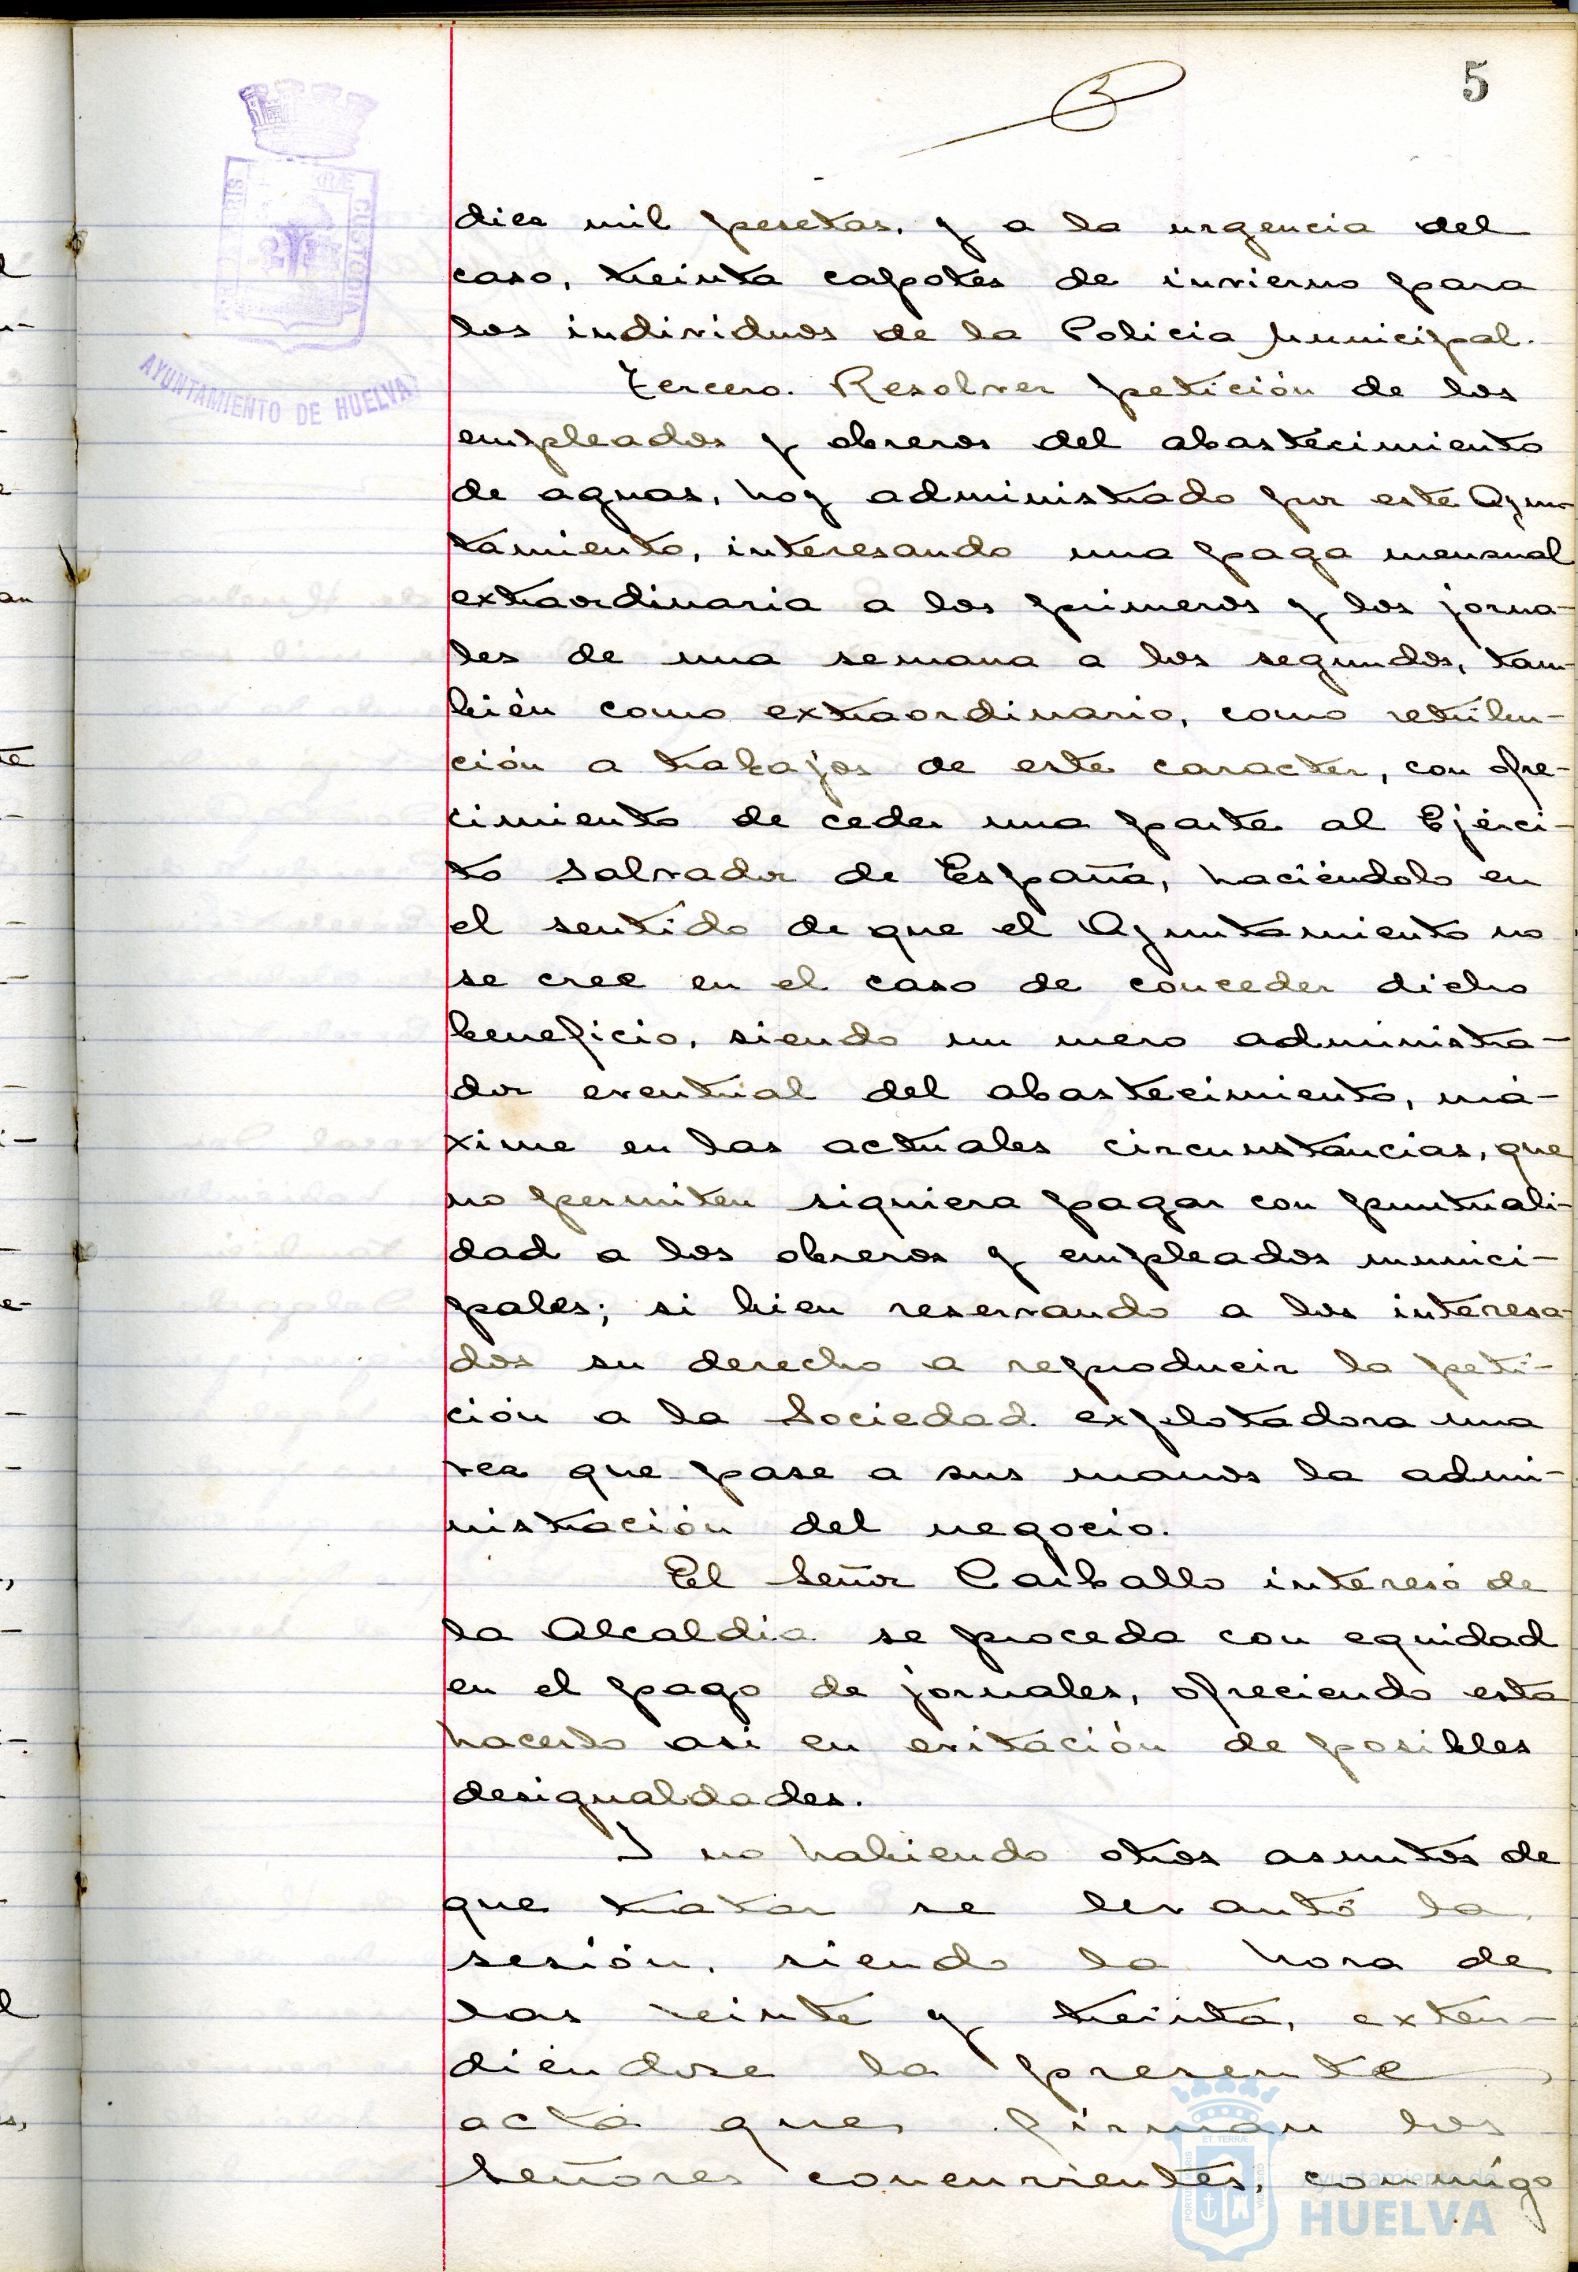 5
AYUNTAMIENTO DE HUELVA
CUSTODIA
diez mil pesetas. y a la urgencia del
caso, treinta capotes de invierno para
los individuos de la Policia Municipal.
Tercero. Resolver petición de los
empleados y obreros del abastecimiento
de aguas, hoy administrado por este Ayun-
tamiento, interesando una paga mensual
extraordinaria a los primeros y los jorna-
les de una semana a los segundos, tam-
bién como extraordinario, como retribu-
ción a trabajos de este caracter, con ofre-
cimiento de ceder una parte al Ejérci-
to Salvador de España, haciéndolo en
el sentido de que el Ayuntamiento no
se cree en el caso de conceder dicho
beneficio, siendo un mero administra-
dor eventual del abastecimiento, má-
xime en las actuales circunstancias, que
no permiten siquiera pagar con puntuali-
dad a los obreros y empleados munici-
pales; si bien reservando a los interesa-
dos su derecho a reproducir la peti-
ción a la Sociedad explotadora una
vez que pase a sus manos la admi-
nistración del negocio.
El Señor Carballo interesó de
la Alcaldia se proceda con equidad
en el pago de jornales, ofreciendo esta
hacerlo asi en evitación de posibles
desigualdades.
Y no habiendo otros asuntos de
que tratar se levantó la
sesión, siendo la hora de
las veinte y treinta, exten-
diéndose la presente
acta que firman los
Señores concurrientes, conmigo
Ayuntamiento de
HUELVA